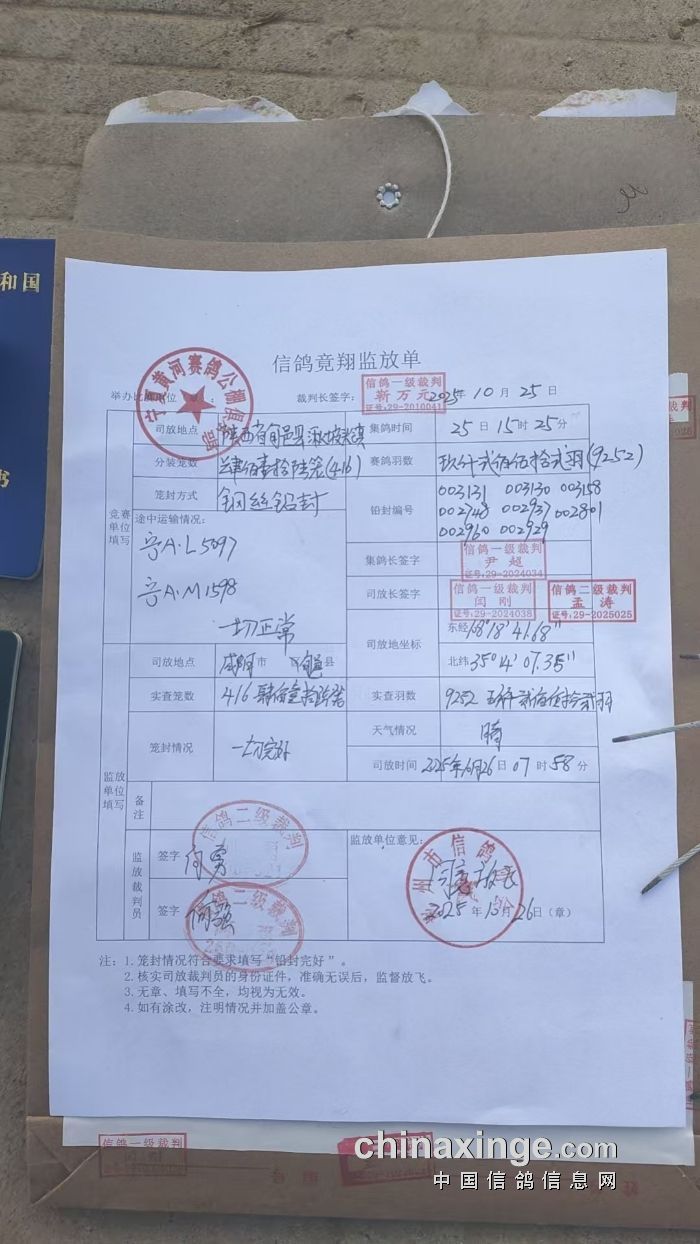 和国
书
信鸽竟翔监放单
宁夏黄河赛鸽公棚
裁判长签字:
信鸽一级裁判
靳万元
证号:29-2010041
2025年 10 月 25 日
竞赛单位填写
司放地点
集鸽时间
25 日 15 时 25 分
分装笼数
(416)
赛鸽羽数
(9252)
笼封方式
钢丝铅封
铅封编号
003131 003130 003158
002748 002937 002801
002960 002929
途中运输情况:
宁A·L5097
宁A·M1598
一切正常
集鸽长签字
信鸽一级裁判
尹 超
证号:29-2024034
司放长签字
信鸽一级裁判
闫 刚
证号:29-2024038
信鸽二级裁判
孟 涛
证号:29-2025025
司放地坐标
东经108°18′41.68″
北纬35°04′07.35″
监放单位填写
司放地点
咸阳市 旬邑县
实查笼数
416
实查羽数
9252
笼封情况
一切完好
天气情况
晴
司放时间
2025年10月26日 07 时 58 分
备注
监放裁判员
签字
信鸽二级裁判
签字
信鸽二级裁判
监放单位意见:
同意放飞
2025年10月26日(章)
注:1.笼封情况符合要求填写“铅封完好”。
2.核实司放裁判员的身份证件,准确无误后,监督放飞。
3.无章、填写不全,均视为无效。
4.如有涂改,注明情况并加盖公章。
信鸽一级裁判
chinaxinge.com
中国信鸽信息网